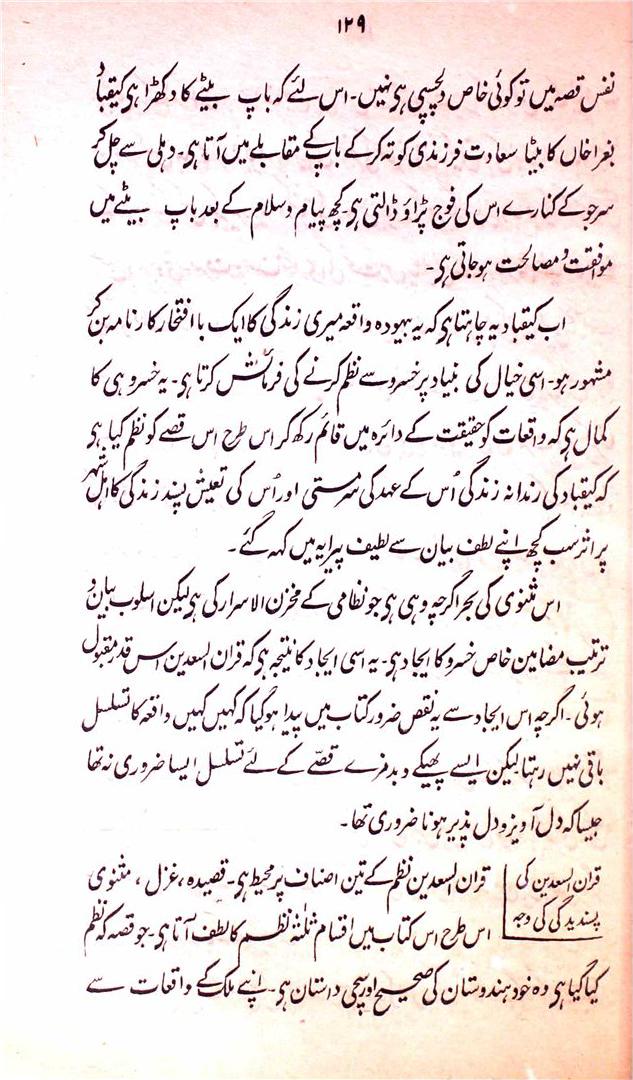 ۱۲۹
نفس قصہ میں تو کوئی خاص دلچسپی ہی نہیں۔ اس لئے کہ باپ بیٹے کا دکھڑا ہی کیقباد
بغرا خاں کا بیٹا سعادت فرزندی کو تہ کرکے باپ کے مقابلے میں آتا ہی۔ دہلی سے چل کر
سرجو کے کنارے اس کی فوج پڑاؤ ڈالتی ہی۔ کچھ پیام و سلام کے بعد باپ بیٹے میں
موافقت و مصالحت ہو جاتی ہی۔
اب کیقباد یہ چاہتا ہی کہ یہ بیہودہ واقعہ میری زندگی کا ایک با افتخار کارنامہ بن کر
مشہور ہو۔ اسی خیال کی بنیاد پر خسرو سے نظم کرنے کی فرمائش کرتا ہی۔ یہ خسرو ہی کا
کمال ہی کہ واقعات کو حقیقت کے دائرہ میں قائم رکھ کر اس طرح اس قصے کو نظم کیا ہی
کہ کیقباد کی رندانہ زندگی اُس کے عہد کی سرمستی اور اُس کی تعیش پسند زندگی کا اہل شہر
پر اثر سب کچھ اپنے لطف بیان سے لطیف پیرایہ میں کہہ گئے۔
اس مثنوی کی بحر اگرچہ وہی ہی جو نظامی کے مخزن الاسرار کی ہی لیکن اسلوب بیان و
ترتیب مضامین خاص خسرو کا ایجاد ہی۔ یہ اسی ایجاد کا نتیجہ ہی کہ قران السعدین اس قدر مقبول
ہوئی۔ اگرچہ اس ایجاد سے یہ نقص ضرور کتاب میں پیدا ہو گیا کہ کہیں کہیں واقعہ کا تسلسل
باقی نہیں رہتا لیکن ایسے پھیکے و بدمزے قصّے کے لئے تسلسل ایسا ضروری نہ تھا
جیسا کہ دل آویز و دل پذیر ہونا ضروری تھا۔
قران السعدین کی
پسندیدگی کی وجہ
قران السعدین نظم کے تین اصناف پر محیط ہی۔ قصیدہ، غزل، مثنوی
اس طرح اس کتاب میں اقسام ثلٰثہ نظم کا لطف آتا ہی۔ جو قصہ کہ نظم
کیا گیا ہی وہ خود ہندوستان کی صحیح اور سچی داستان ہی۔ اپنے ملک کے واقعات سے